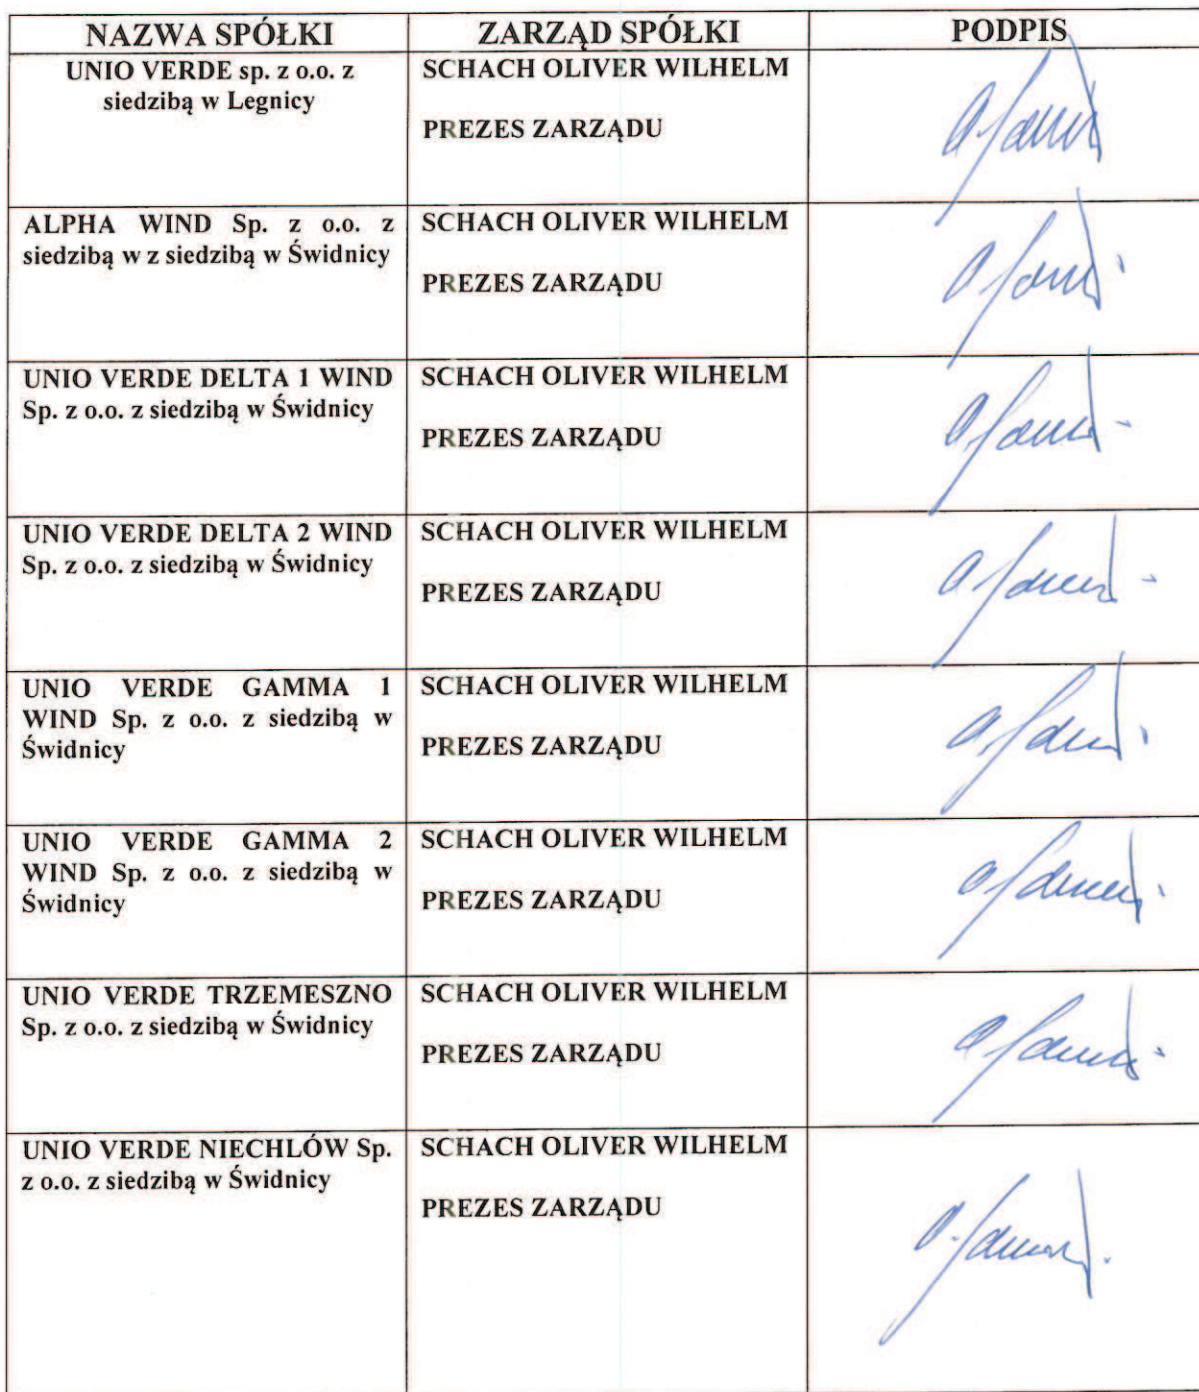 NAZWA SPÓŁKI ZARZĄD SPÓŁKI PODPIS
UNIO VERDE sp. z o.o. z
siedzibą w Legnicy
SCHACH OLIVER WILHELM
PREZES ZARZĄDU
ALPHA WIND Sp. z o.o. z
siedzibą w z siedzibą w Świdnicy
SCHACH OLIVER WILHELM
PREZES ZARZĄDU
UNIO VERDE DELTA 1 WIND
Sp. z o.o. z siedzibą w Świdnicy
SCHACH OLIVER WILHELM
PREZES ZARZĄDU
UNIO VERDE DELTA 2 WIND
Sp. z o.o. z siedzibą w Świdnicy
SCHACH OLIVER WILHELM
PREZES ZARZĄDU
UNIO VERDE GAMMA 1
WIND Sp. z o.o. z siedzibą w
Świdnicy
SCHACH OLIVER WILHELM
PREZES ZARZĄDU
UNIO VERDE GAMMA 2
WIND Sp. z o.o. z siedzibą w
Świdnicy
SCHACH OLIVER WILHELM
PREZES ZARZĄDU
UNIO VERDE TRZEMESZNO
Sp. z o.o. z siedzibą w Świdnicy
SCHACH OLIVER WILHELM
PREZES ZARZĄDU
UNIO VERDE NIECHLÓW Sp.
z o.o. z siedzibą w Świdnicy
SCHACH OLIVER WILHELM
PREZES ZARZĄDU